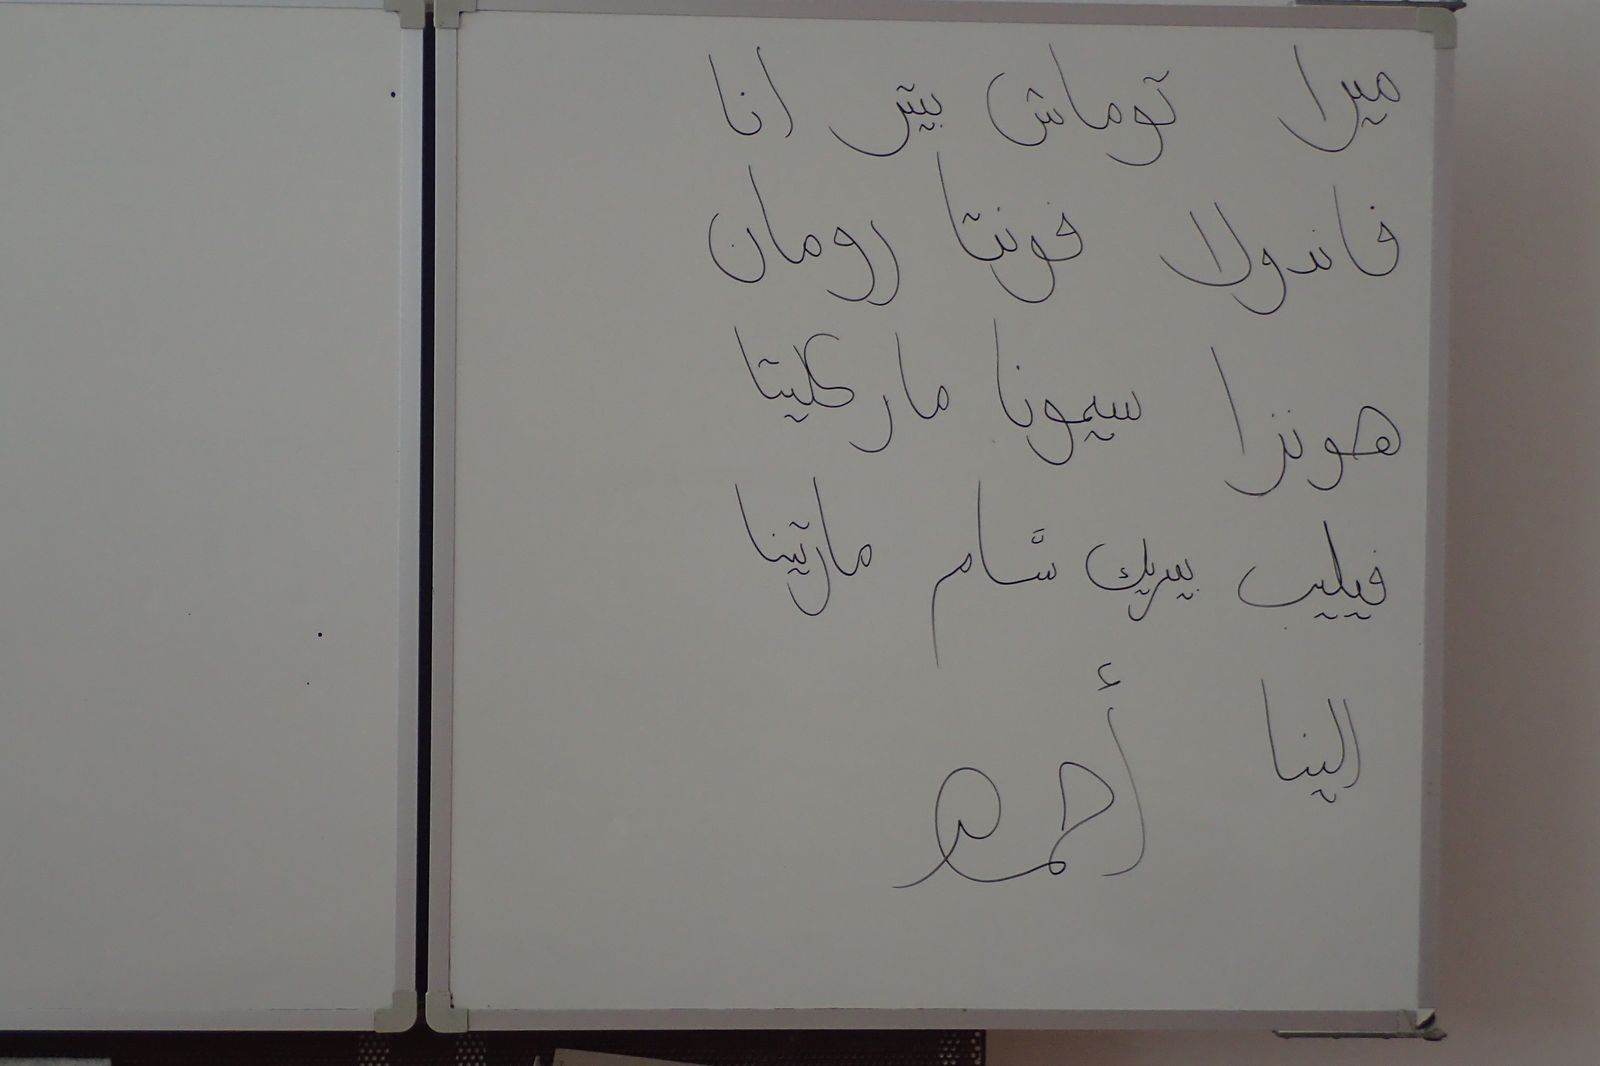 ميرا توماش بيتر انا
فاندولا فونتا رومان
هونزا سيمونا ماركليتا
فيليب بيريك شام مارتينا
الينا
أحمد